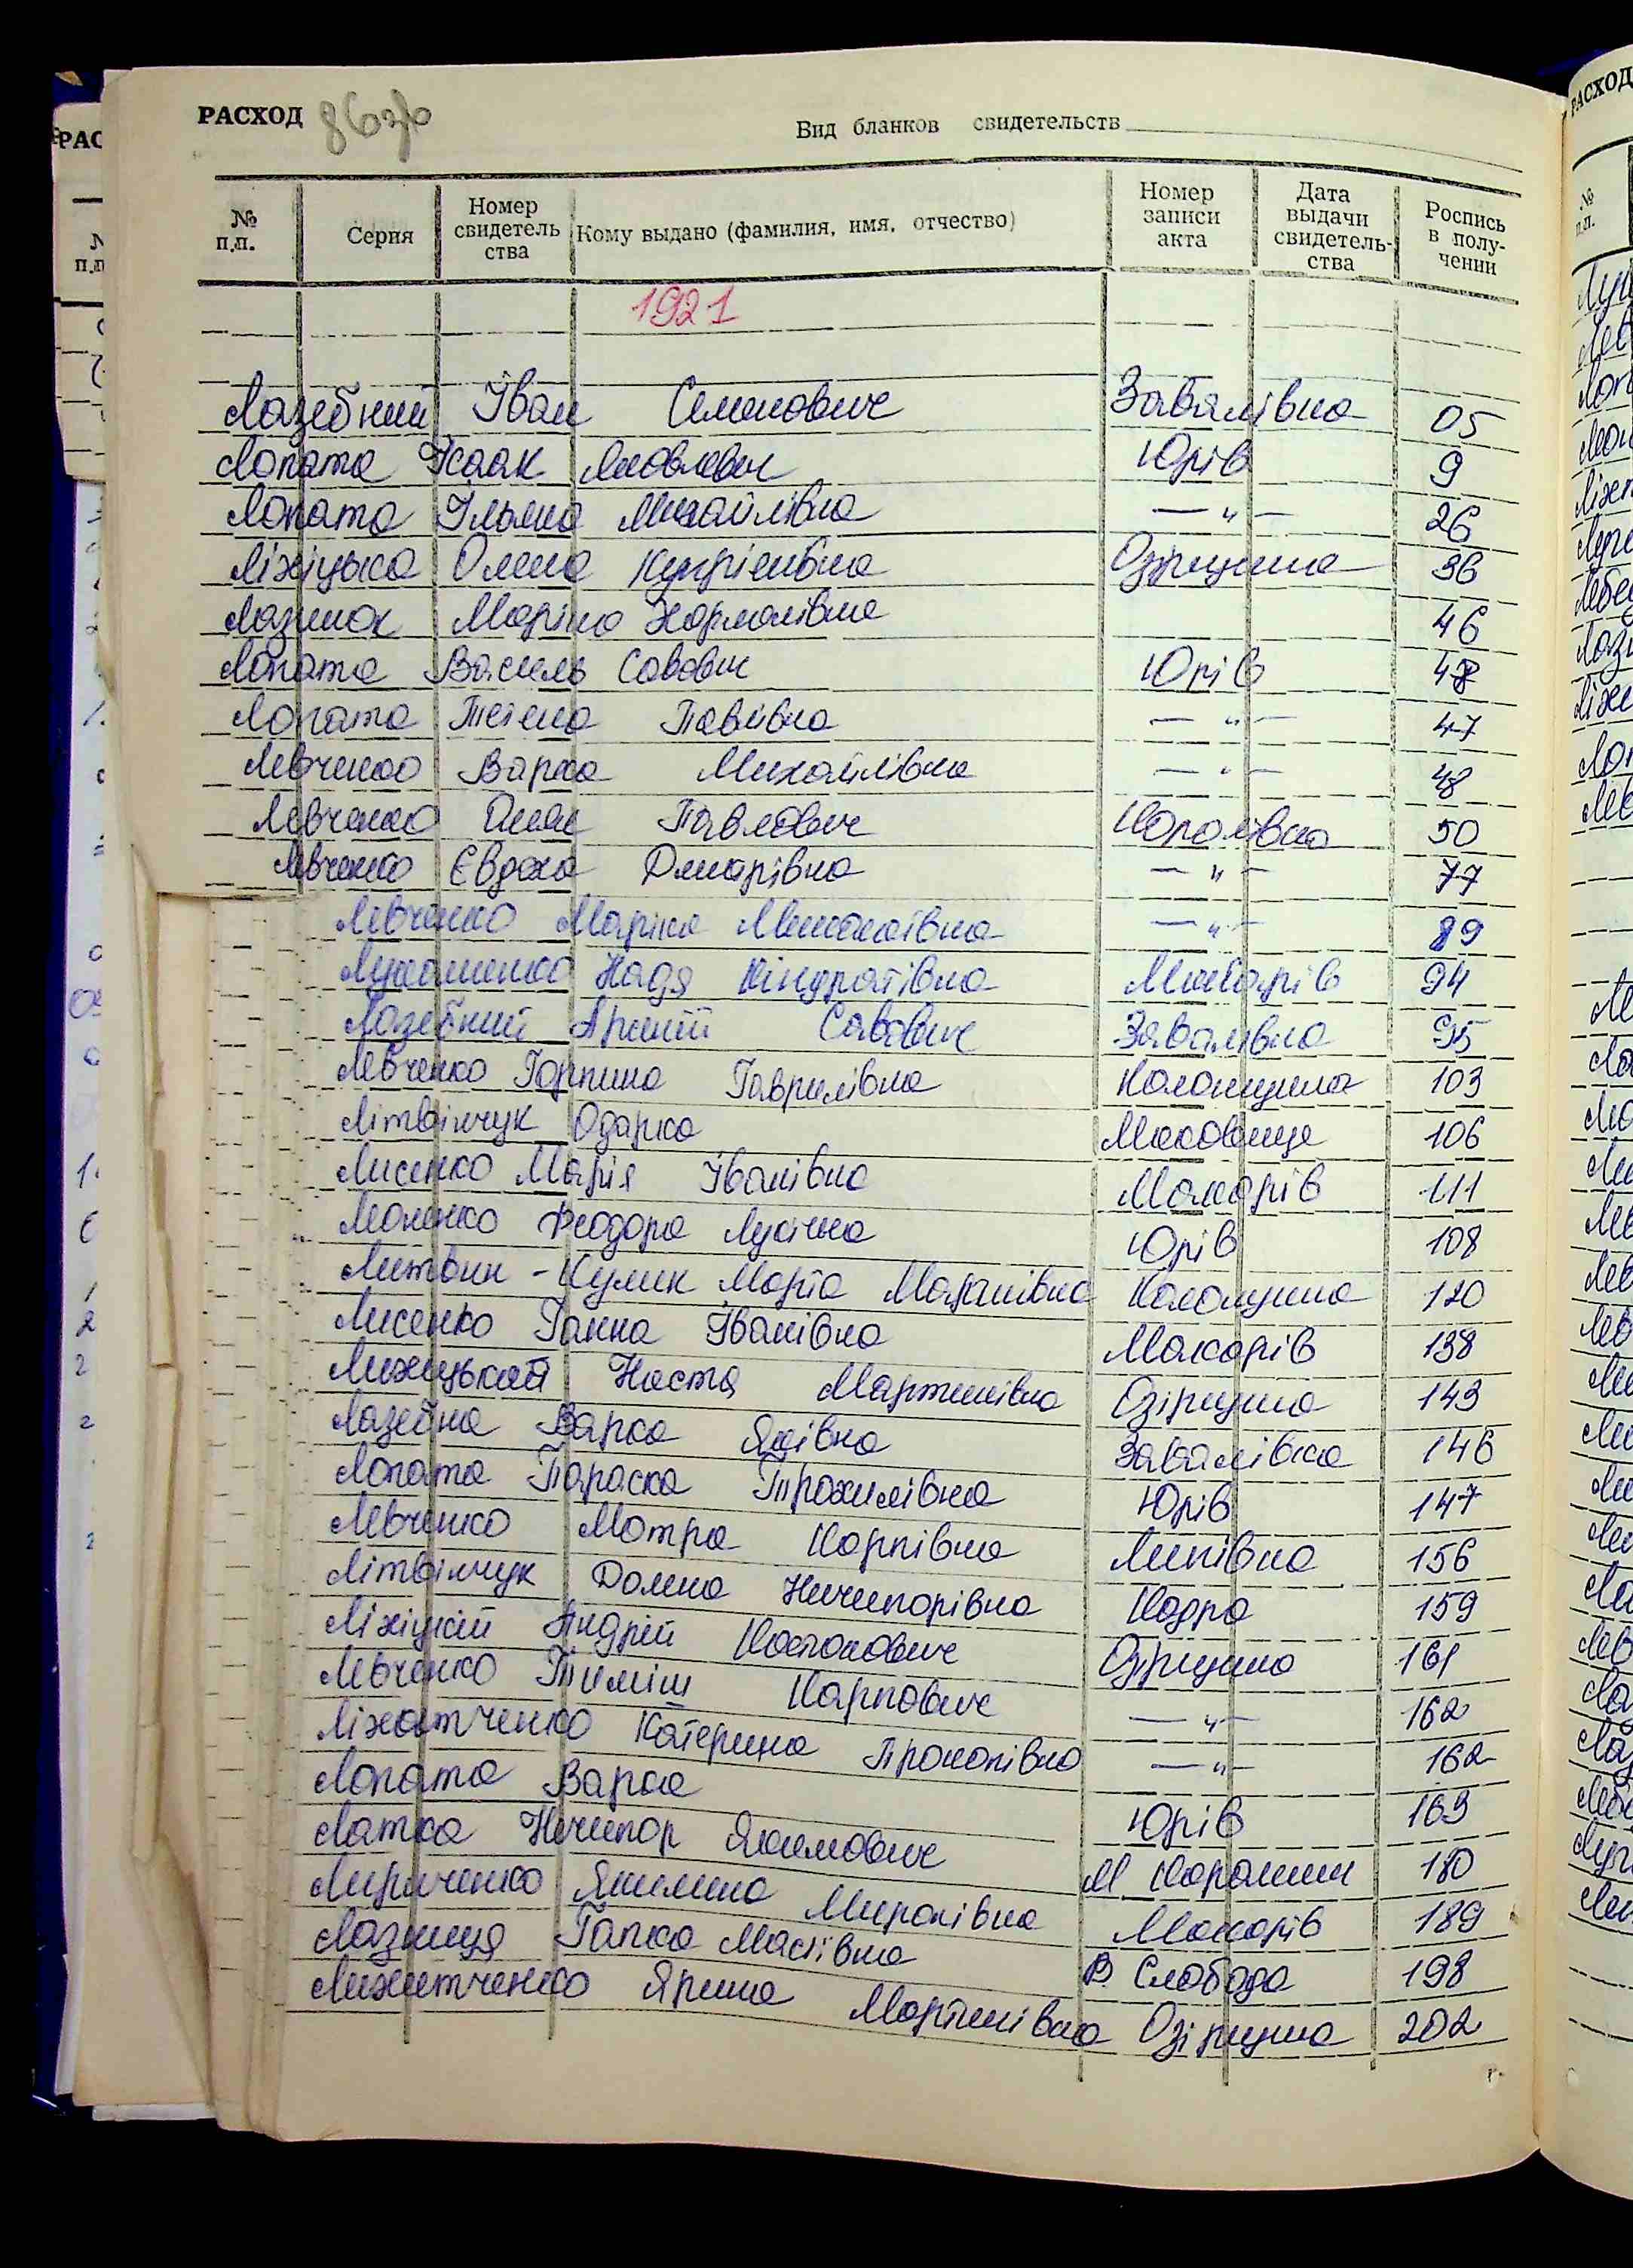 РАСХОД 86зв
Вид бланков свидетельств
№ п.п. Серия Номер свидетельства Кому выдано (фамилия, имя, отчество) Номер записи акта Дата выдачи свидетельства Роспись в получении
1921
Лазебний Іван Семенович Завалівка 05
Лопата Ісаак Яковлевич Юрів 9
Лопата Ульяна Михайлівна — " — 26
Ліхіцька Олена Купріенівна Озірщина 36
Лазинок Маріна Харполівна 46
Лопата Василь Савович Юрів 48
Лопата Тетена Павлівна — " — 47
Левченко Варка Михайлівна — " — 48
Левченко Павлович Королівка 50
Левченко Євдоха 77
Левченко Маріка Миколаївна — " — 89
Лукаменко Надя Кіндратівна Макарів 94
Лазебний Савович Завалівка 95
Левченко Горпина Гаврилівна Колонщина 103
Літвінчук Одарка Маковище 106
Лисенко Марія Іванівна Макарів 111
Феодора Лукічна Юрів 108
Литвин - Кулик Марта Мартинівна Колонщина 120
Лисенко Ганна Іванівна Макарів 138
Лихіцькая Настя Мартинівна Озірщина 143
Лазебна Варка Яківна Завалівка 146
Лопата Параска Трохимівна Юрів 147
Левченко Мотра Карпівна Липівка 156
Літвінчук Домна Ничипорівна Кодра 159
Ліхіцкій Андрій Озірщина 161
Левченко Тиміш Карпович — " — 162
Ліхатченко Катерина Прокопівна — " — 162
Лопата Варка Юрів 163
Латка Ничипор Якимович М Карашин 180
Лириченко Якилина Миронівна Макарів 189
Лазниця Гапка В Слобода 198
Лихитченко Ярина Мартинівна Озірщина 202